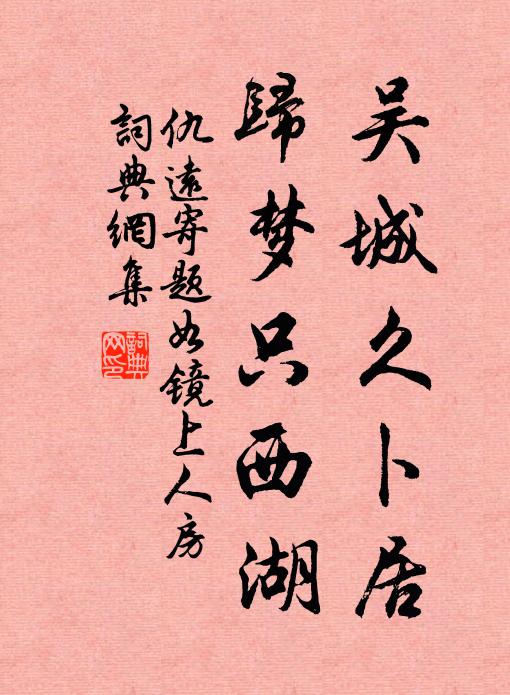 吴城久卜居
歸梦只西湖
仇遠寄題如镜上人房
詞典網集
詞典网印